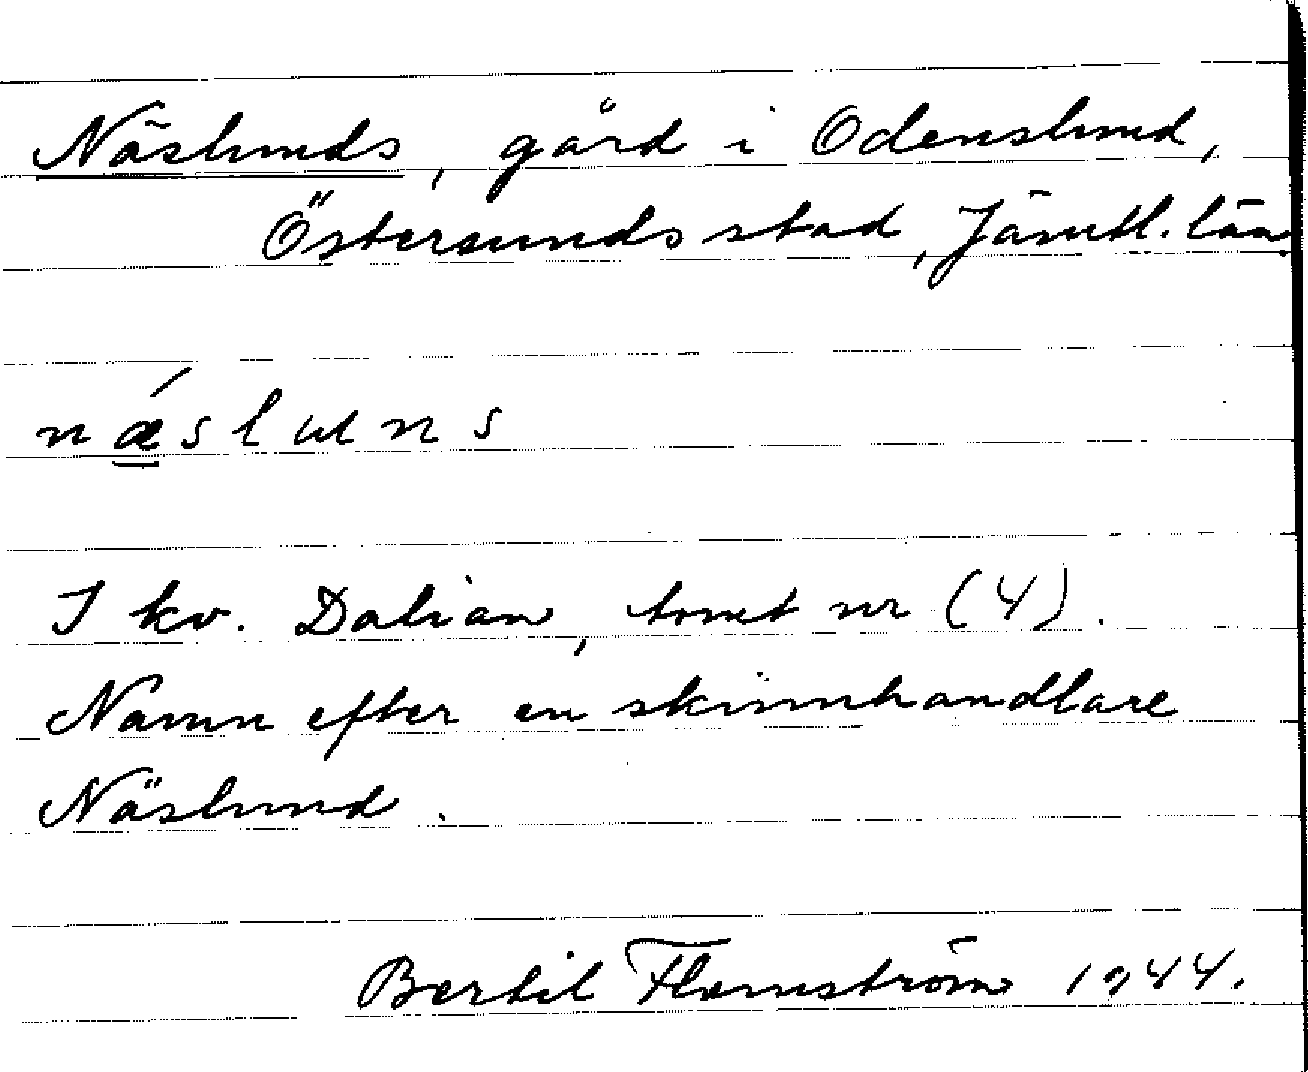 Näslunds, gård i Odenslund,
Östersunds stad, Jämtl. län.
næ´sluns
I kv. Dalian, tomt nr (4).
Namn efter en skinnhandlare
Näslund.
Bertil Flemström 1944.